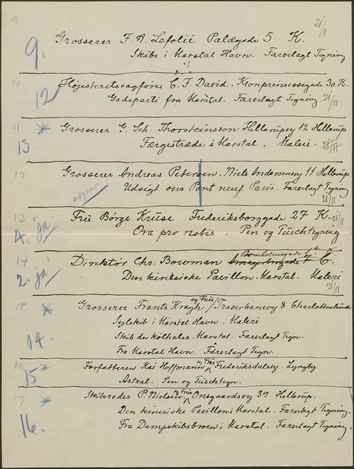 9. Grosserer F. A. Lefolii Palægade 5 K.
Skibe i Marstal Havn. Farvelagt Tegning
12 Højesteretssagfører C. F. David. Kronprinsessegade 30 K.
Gadeparti fra Marstal. Farvelagt Tegning
13 * Grosserer G. Sch. Thorsteinsson Hellerupvej 12 Hellerup
Færgestræde i Marstal. Maleri
Grosserer Andreas Petersen. Niels Andersensvej 11 Hellerup
Udsigt over Pont neuf Paris. Farvelagt Tegning
4. ja Fru Børge Kruse Frederiksborggade 27 K.
Ora pro nobis. Pen og Tuschtegning
2. ja Direktör Chr. Bowman C.
Den kinesiske Pavillon. Marstal. Maleri
Grosserer Frants Kragh og Frue Charlottenlund
Sejlskib i Marstal Havn. Maleri
14. Skib der kølhales. Marstal. Farvelagt Tegn.
Fra Marstal Havn. Farvelagt Tegn.
15 * Forfatteren Kai Hoffmann og Frue Frederiksdalsvej Lyngby.
Astral. Pen og Tuschtegn.
* Skibsreder P. Nielsen og Frue Onsgaardsvej 30 Hellerup.
Den kinesiske Pavillon i Marstal. Farvelagt Tegning
16. Fra Dampskibsbroen i Marstal. Farvelagt Tegning.